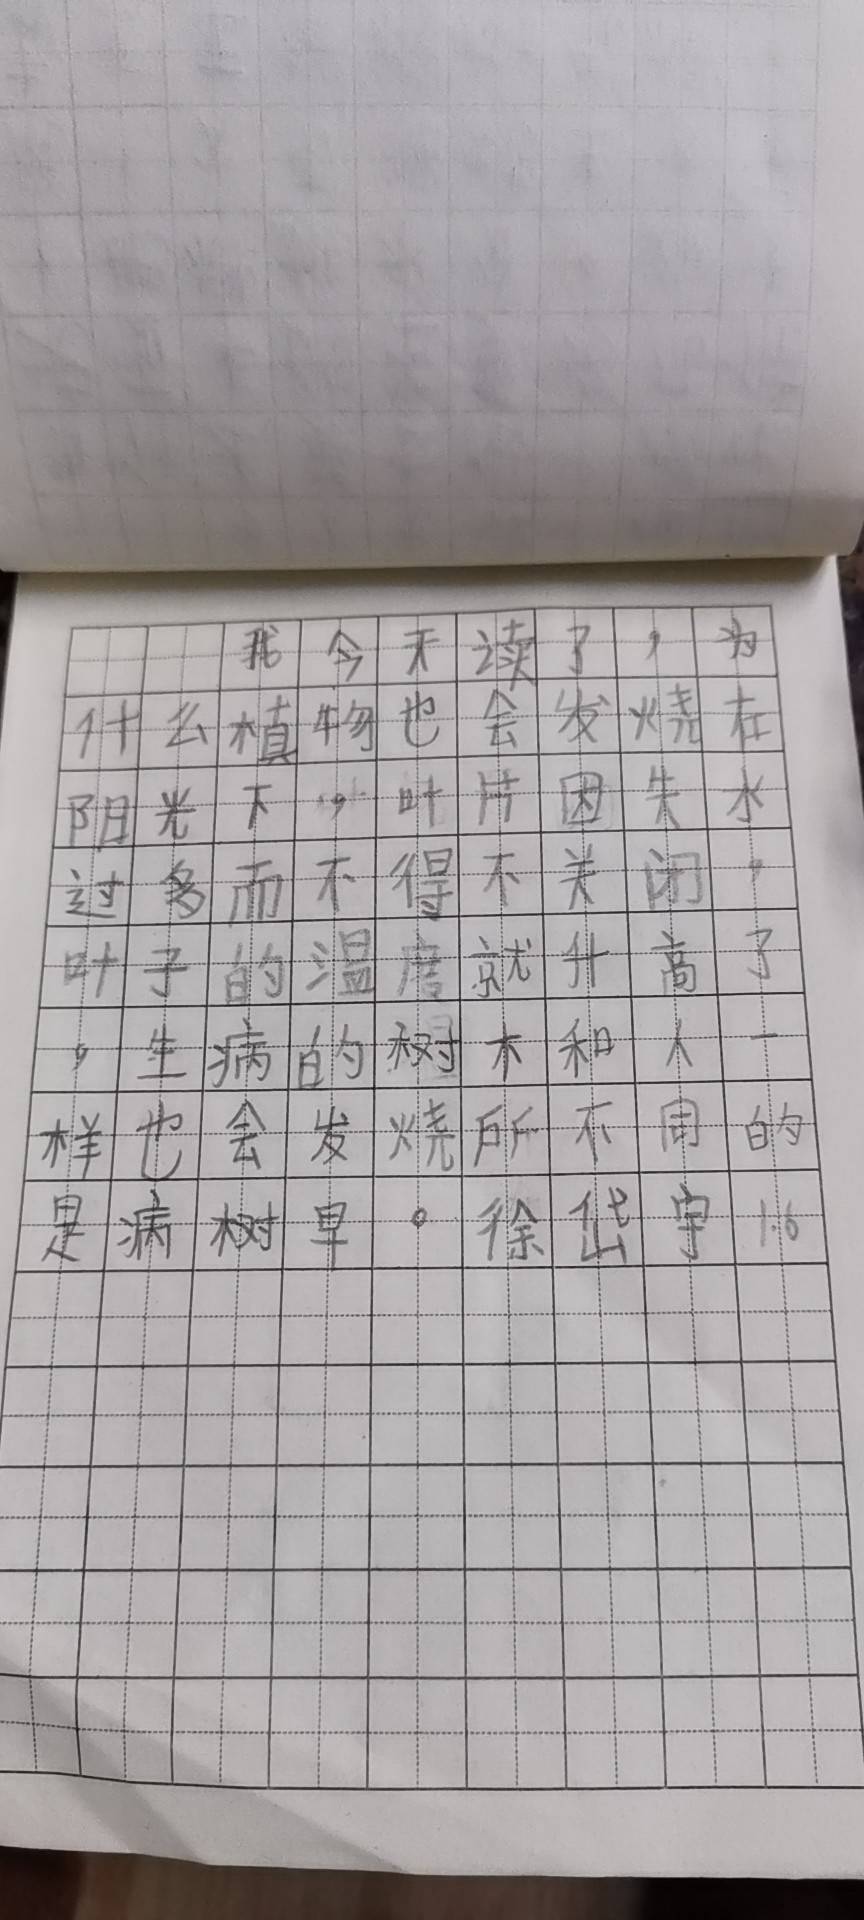 我今天读了，为
什么植物也会发烧在
阳光下，叶片因失水
过多而不得不关闭，
叶子的温度就升高了
，生病的树木和人一
样也会发烧所不同的
是病树早。徐岱宇1.6